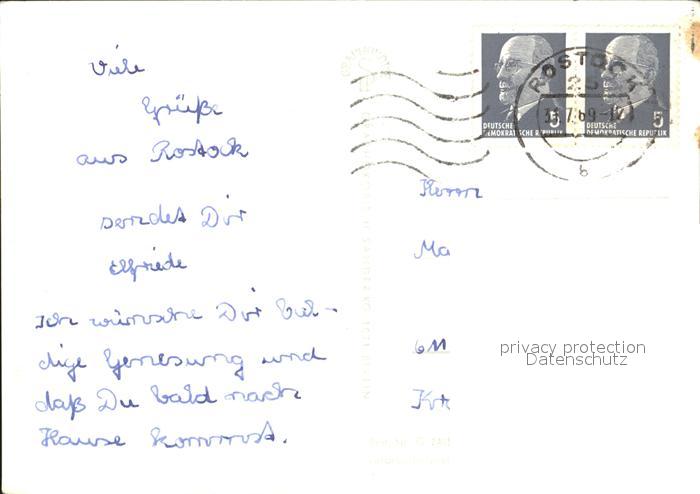 Viele
Grüße
aus Rostock
sendet Dir
Elfriede
Ich wünsche Dir bal-
dige Genesung und
daß Du bald nach
Hause kommst.
DEUTSCHE
DEMOKRATISCHE REPUBLIK
5
DEUTSCHE
DEMOKRATISCHE REPUBLIK
5
ROSTOCK
b
Herrn
Ma
privacy protection
Datenschutz